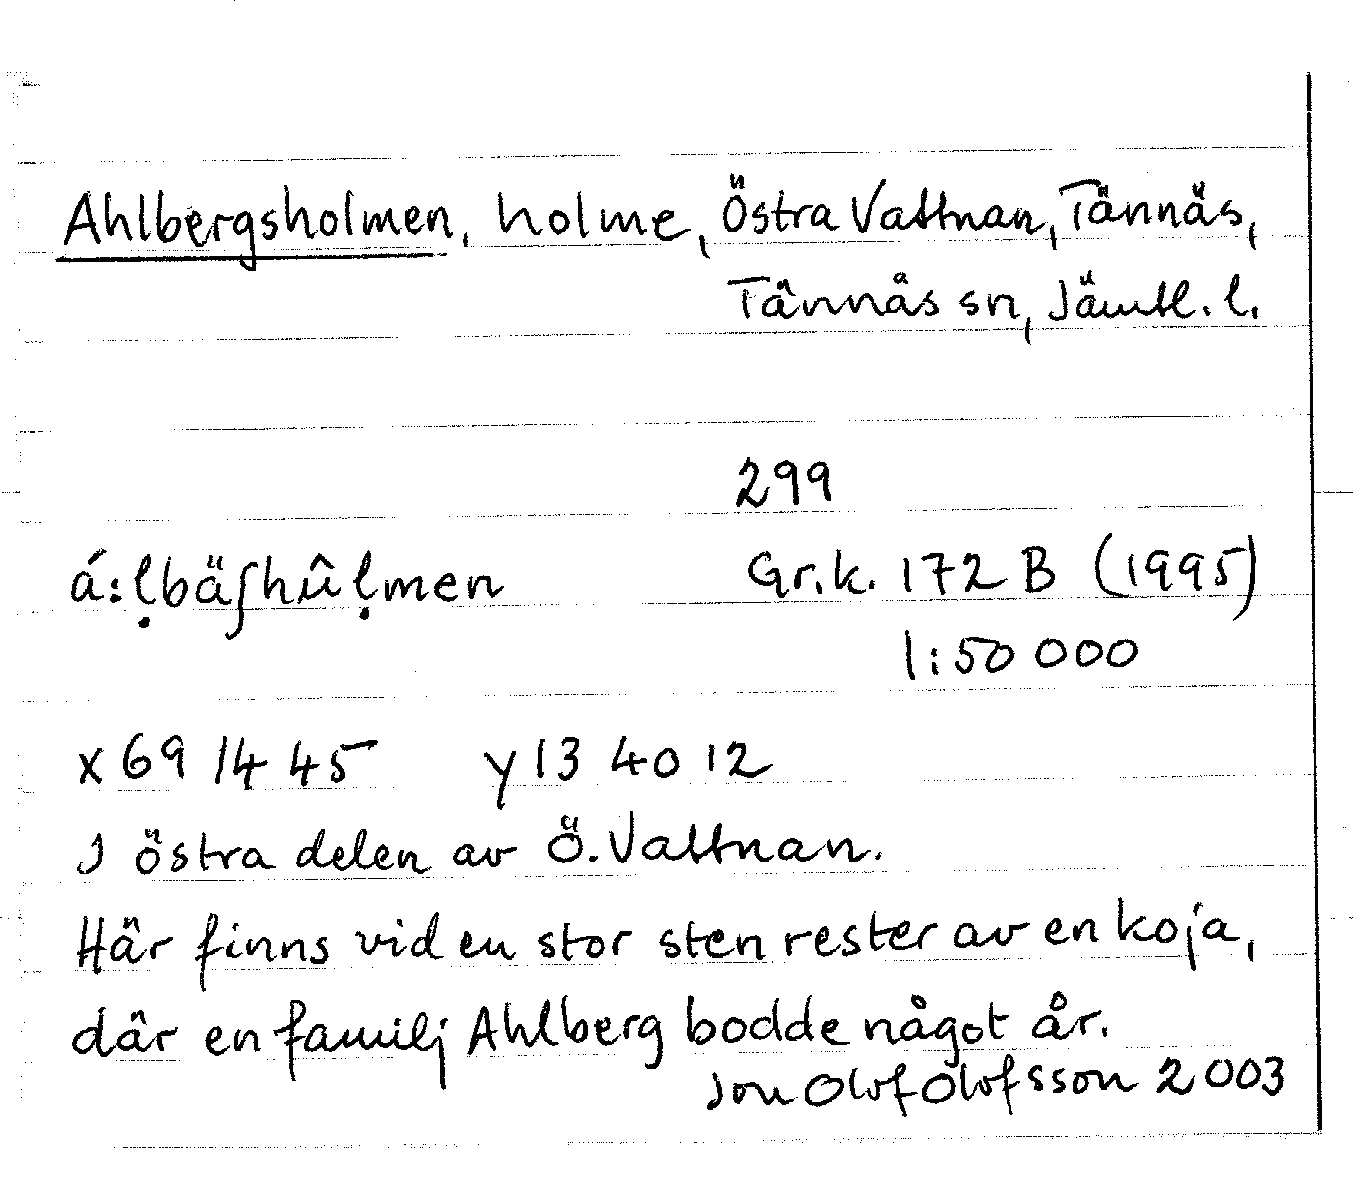 Ahlbergsholmen, holme, Östra Vattnan, Tännäs,
Tännäs sn, Jämtl. l.
299
á:ḷbäʃhûḷmen Gr.k. 172 B (1995)
1:50 000
x 69 14 45 y 13 40 12
I östra delen av Ö. Vattnan.
Här finns vid en stor sten rester av en koja,
där en familj Ahlberg bodde något år.
Jon Olof Olofsson 2003